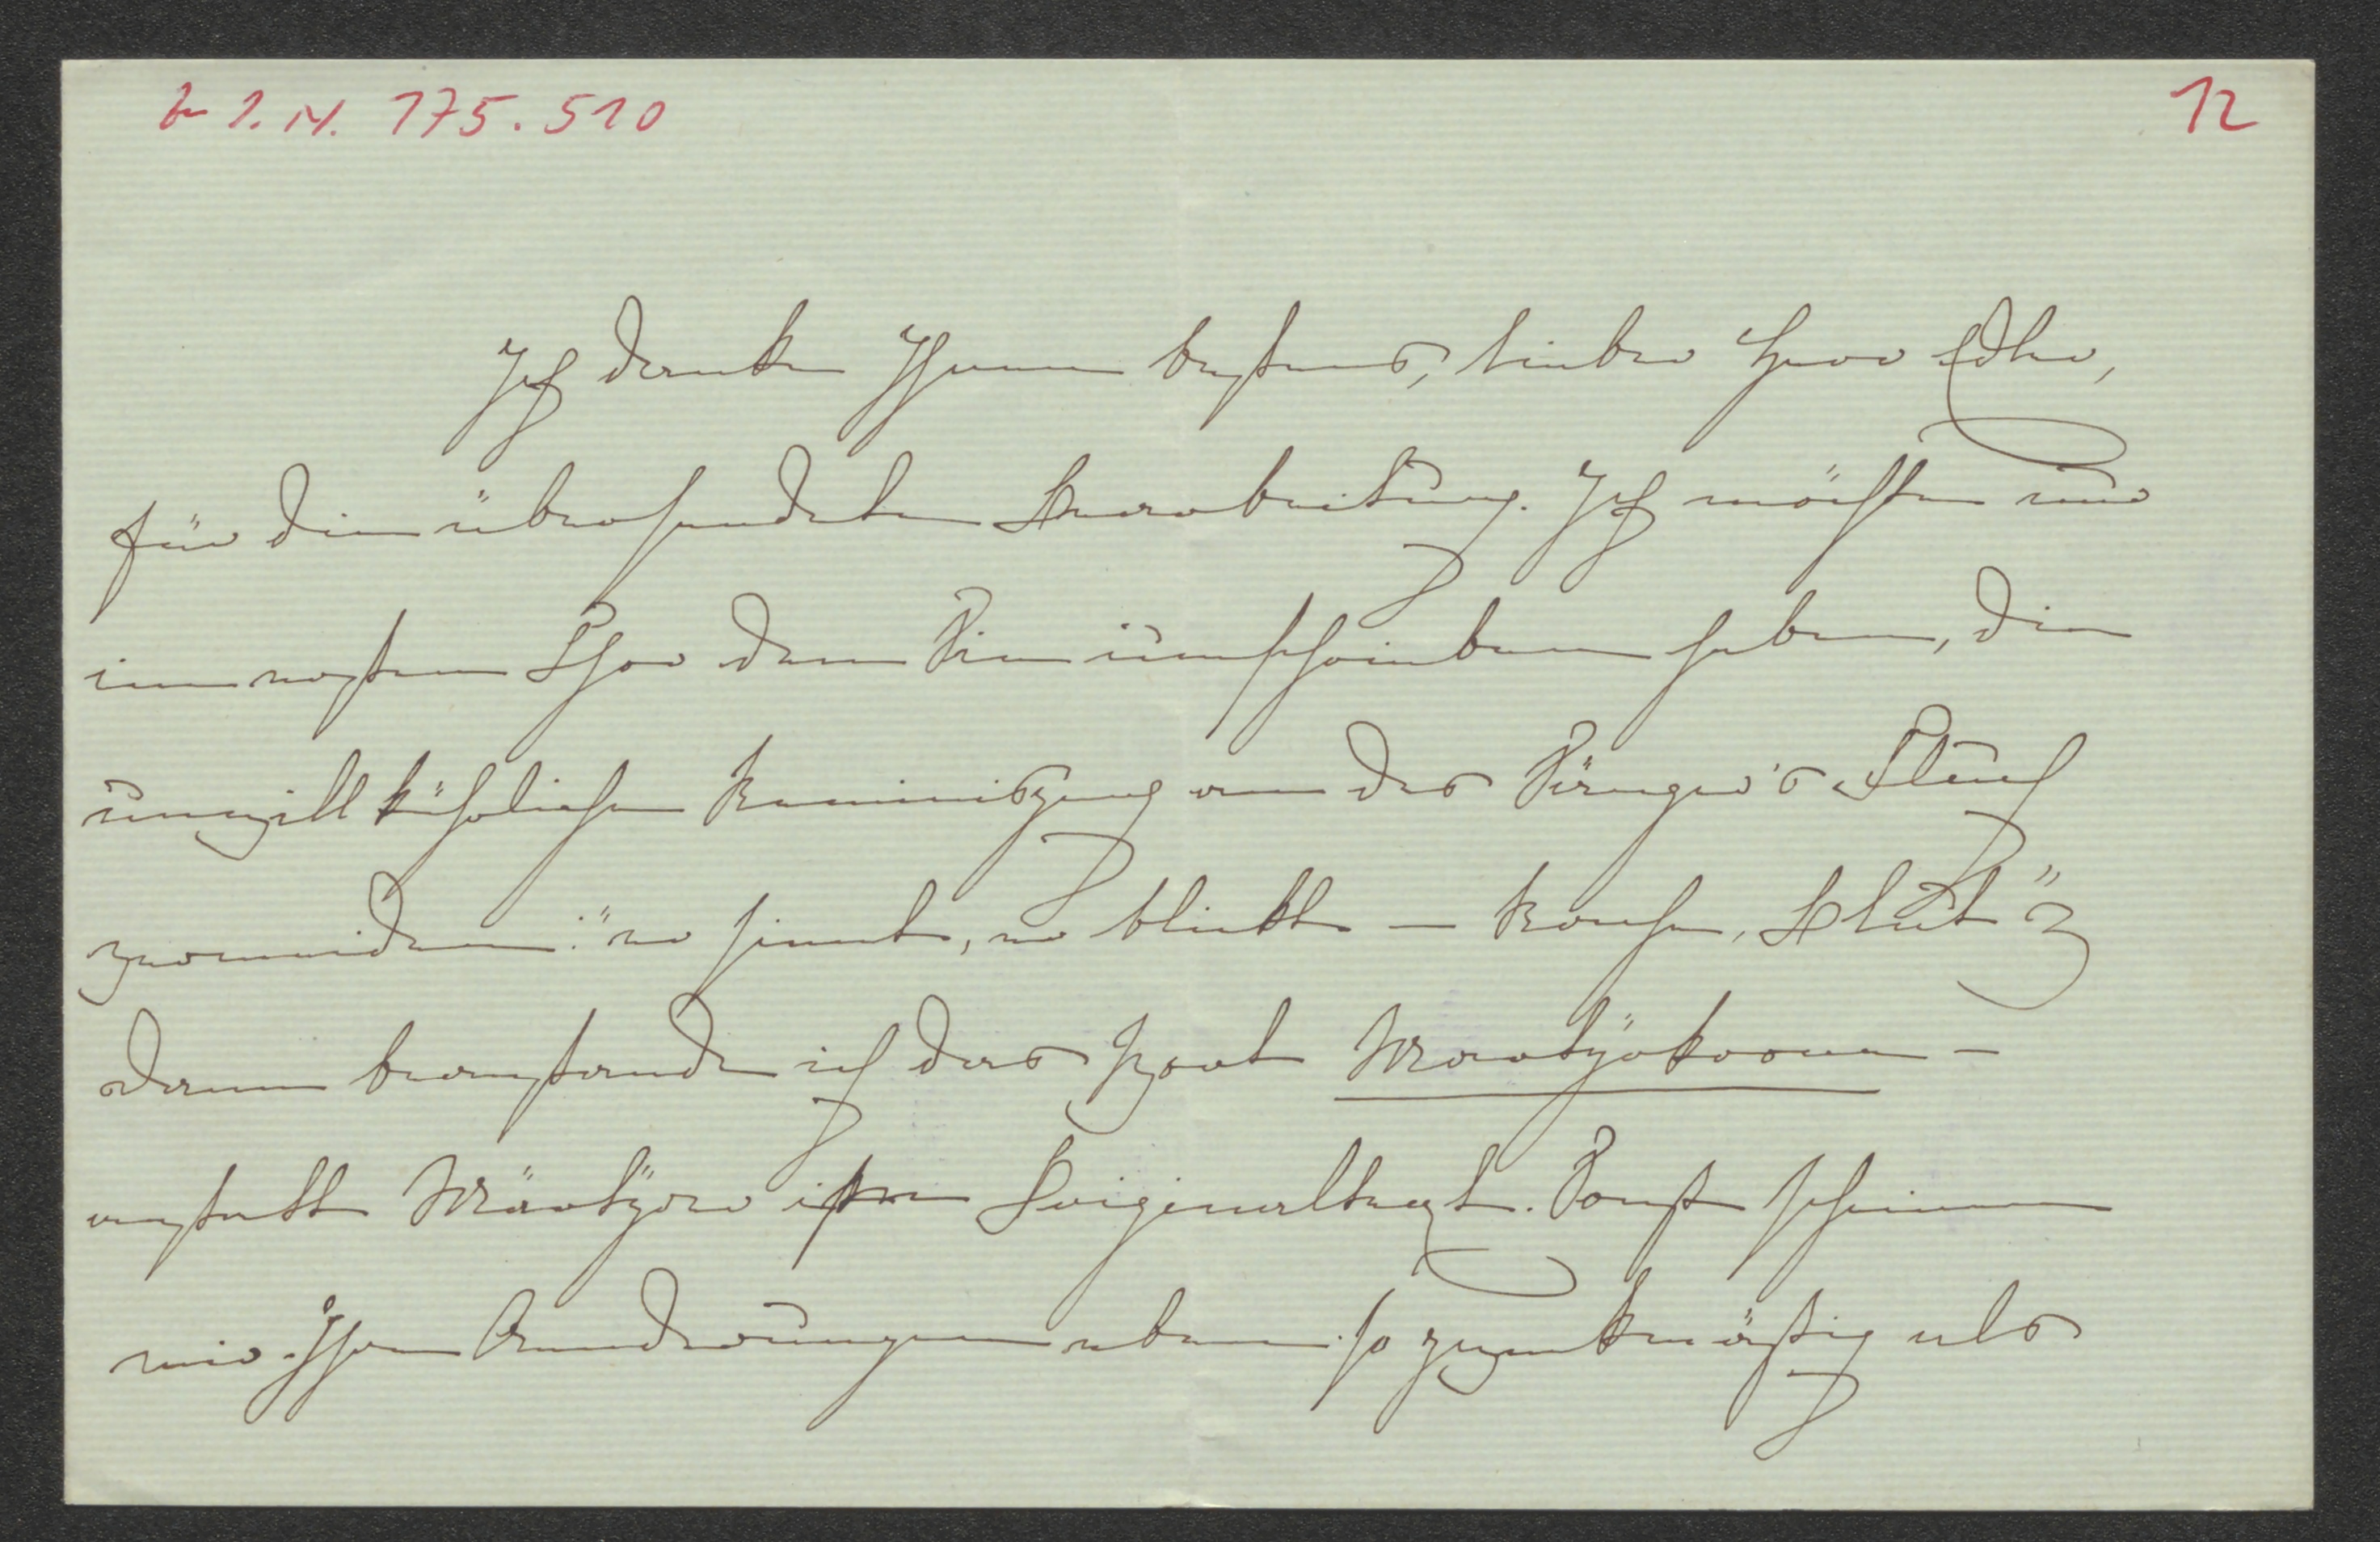 I. N. 175.510
12
Ich danke Ihnen bestens, lieber Herr Edler,
für die übersendete Bearbeitung. Ich möchte nur
im ersten Chor den Sie umschrieben haben, die
unwillkührliche Reminiszenz an des Sänger's Fluch
vermeiden: "er sinnt, er blickt – Rache, Blut"
dann beanstande ich das Wort Martyrkrone –
anstatt Märtyrer im Originaltext. Sonst scheinen
mir Ihre Änderungen eben so zweckmäßig als